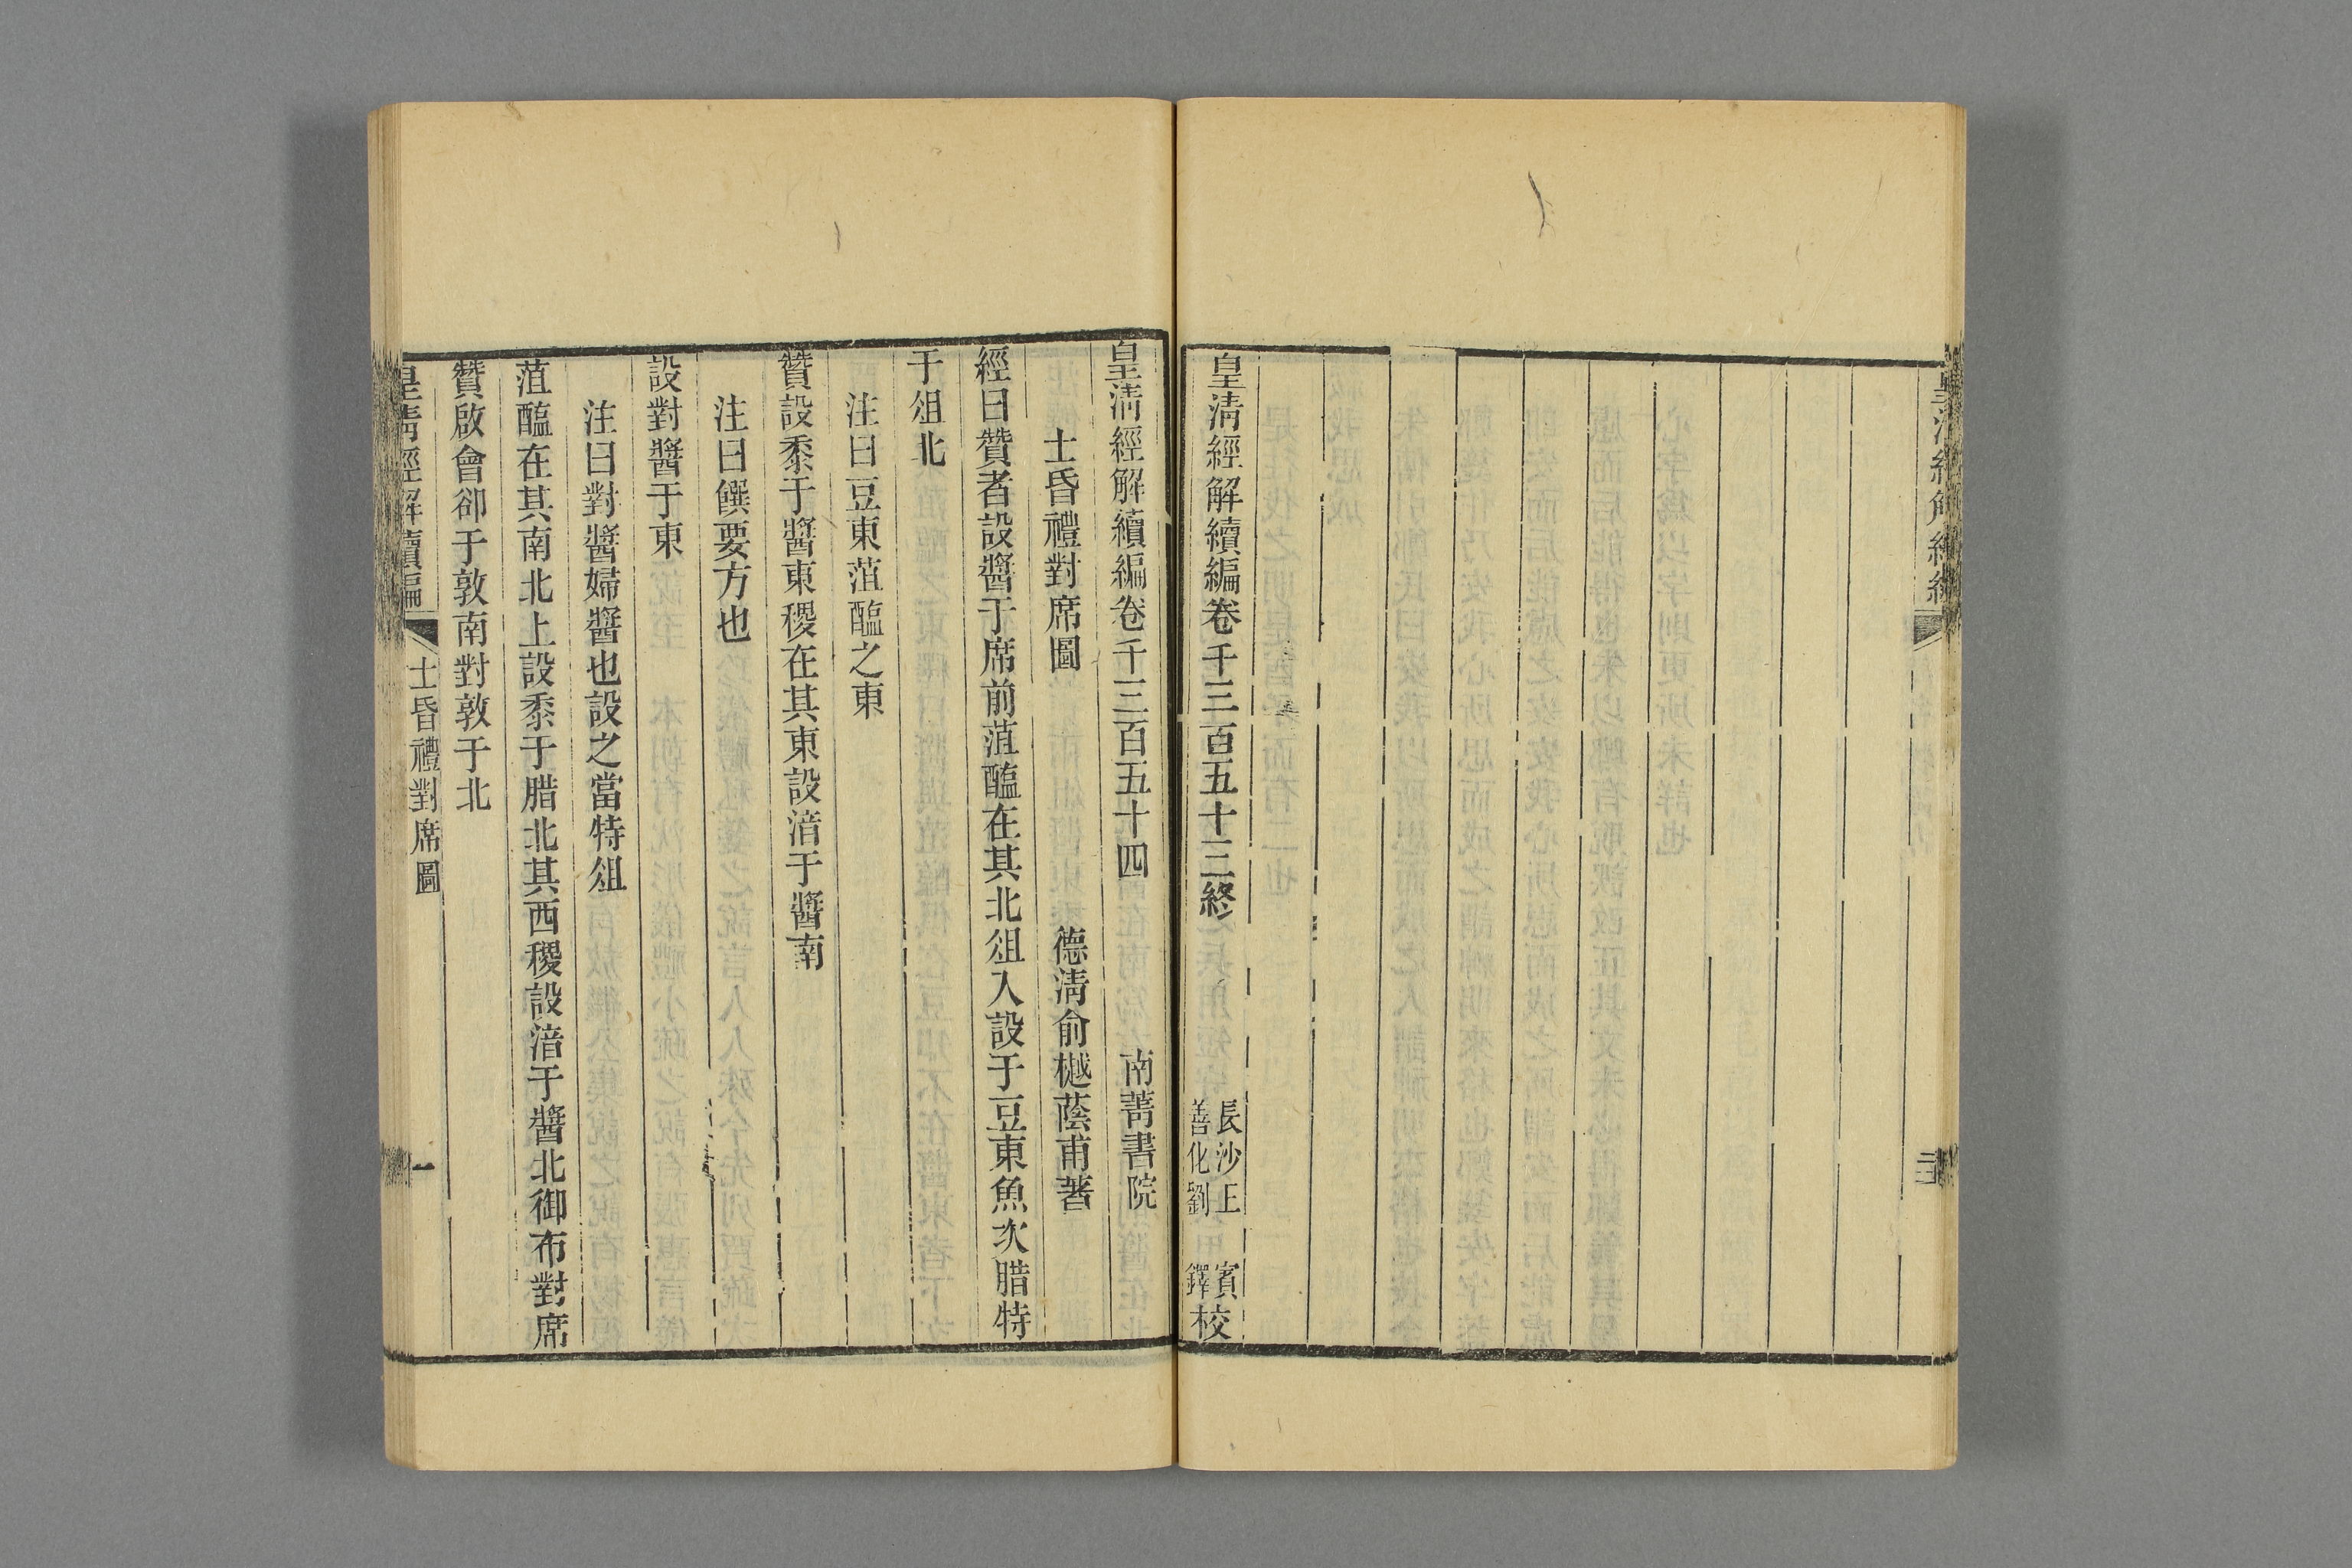 皇清經解續編卷千三百五十三終
長沙王 賓
善化劉 鐸校
皇清經解續編卷千三百五十四 南菁書院
士昏禮對席圖 德清俞樾蔭甫著
經曰贊者設醬于席前菹醢在其北俎入設于豆東魚次腊特
于俎北
注曰豆東菹醢之東
贊設黍于醬東稷在其東設湆于醬南
注曰饌要方也
設對醬于東
注曰對醬婦醬也設之當特俎
菹醢在其南北上設黍于腊北其西稷設湆于醬北御布對席
贊啟會卻于敦南對敦于北
皇清經解續編 士昏禮對席圖 一